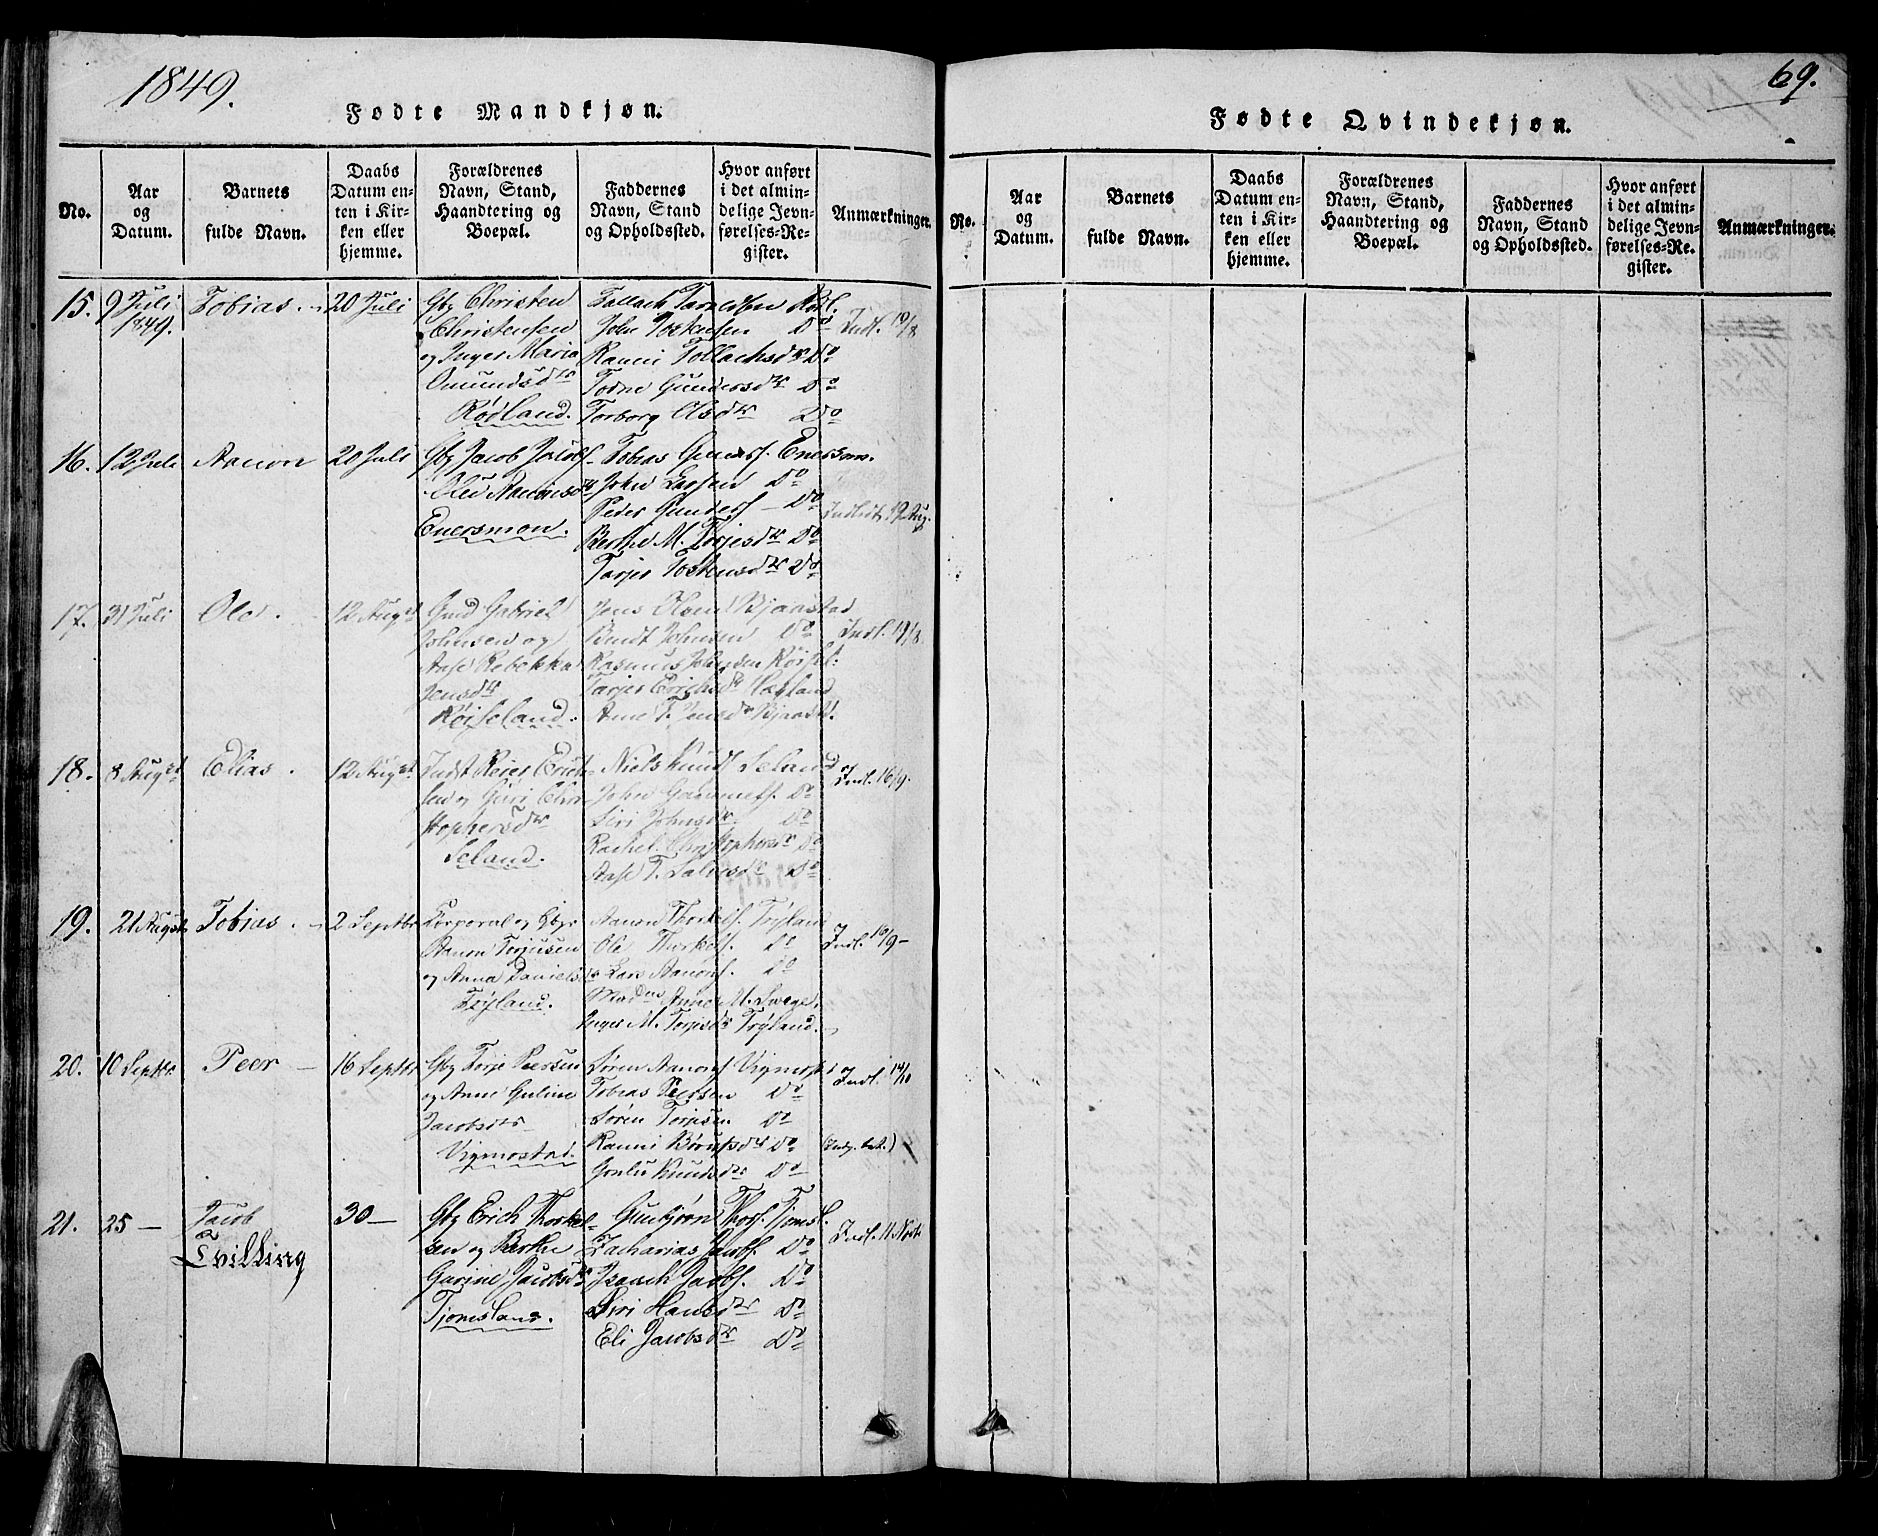 1849.
Fødte Mandkjøn.
No.
Aar og Datum.
Barnets fulde Navn.
Daabs Datum enten i Kirken eller hjemme.
Forældrenes Navn, Stand, Haandtering og Boepæl.
Faddernes Navn, Stand og Opholdssted.
Hvor anført i det almindelige Jevnførelses-Register.
Anmærkninger.
15. 9 Juli 1849. Tobias. 20 Juli
Gbr Christen
Christensen
og Inger Maria
Omundsdtr
Rødland.
John Do
Do
Todne Gundersdtr Do
Torborg Olsdtr Do
Indl. 19/8
16. 12 Juli Aanon 20 Juli
Gbr Jacob Jacobs.
Enersmon.
Tobias Enersmon.
John Larsen Do
Peder Gunders. Do
Berthe M. Terjesdtr Do
Tarjer Tostensdtr Do
Indledt 19 Aug.
17. 31 Juli Ole. 12 Augst
Gmd Gabriel
Johnsen og
Aase Rebekka
Jensdtr
Røiseland.
Jens Olsen Bjaastad
Bendt Johnsen Do
Rasmus Johnsen Røisel.
Tarjer Erichsdtr
Ane T. Jensdtr Bjaast.
Indl. 19/8
18. 8 Augst Elias. 12 Augst
Indst Reier Erich-
sen og Guri Chri-
stophersdtr
Seland.
Niels Knuds. Seland
John Do
Siri Johnsdtr Do
Rachel Christophersdtr Do
Aase T. Salvesdtr Do
Indl. 16/9.
19. 21 August Tobias. 2 Septbr
Corporal og Gbr
Aanon Terjusen
og Anna Danielsdtr
Trÿland.
Aanon Thorkels. Trÿland
Ole Thorkels. Do
Lars Aanons. Do
Anne M. Svege.
Inger M. Terjesdtr Trÿland.
Indl. 10/9
20. 10 Septbr Peer 16 Septbr
Gbr Terje Peersen
og Anne Guline
Jacobsdtr
Vigmostad.
Søren Aanons. Vigmost.
Tobias Peersen Do
Søren Terjesen Do
Ranni Do
Gunlu Knudsdtr Do
Indl. 14/10
21. 25 — Jacob 30 —
Tvilling
Gbr Erich Thorkel-
sen og Berthe
Garine Jacobsdtr
Tjomsland.
Gunbjørn Thors. Tjomsl.
Zacharias Jacobs. Do
Isaach Jacobs. Do
Siri Hansdtr Do
Eli Jacobsdtr Do
Indl. 11 Novb
69.
Fødte Qvindekjøn.
No.
Aar og Datum.
Barnets fulde Navn.
Daabs Datum enten i Kirken eller hjemme.
Forældrenes Navn, Stand, Haandtering og Boepæl.
Faddernes Navn, Stand og Opholdssted.
Hvor anført i det almindelige Jevnførelses-Register.
Anmærkninger.